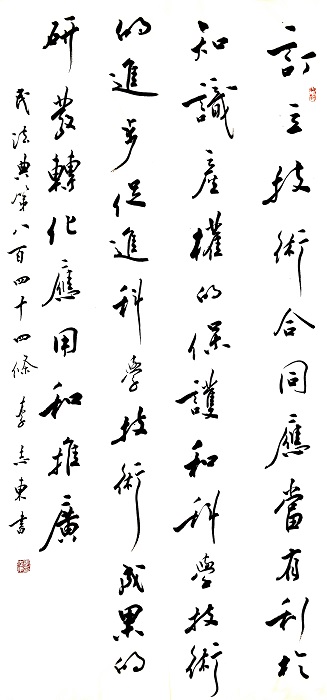 訂立技術合同應當有利於
知識產權的保護和科學技術
的進步促進科學技術成果的
研發轉化應用和推廣
民法典第八百四十四條 李志東書